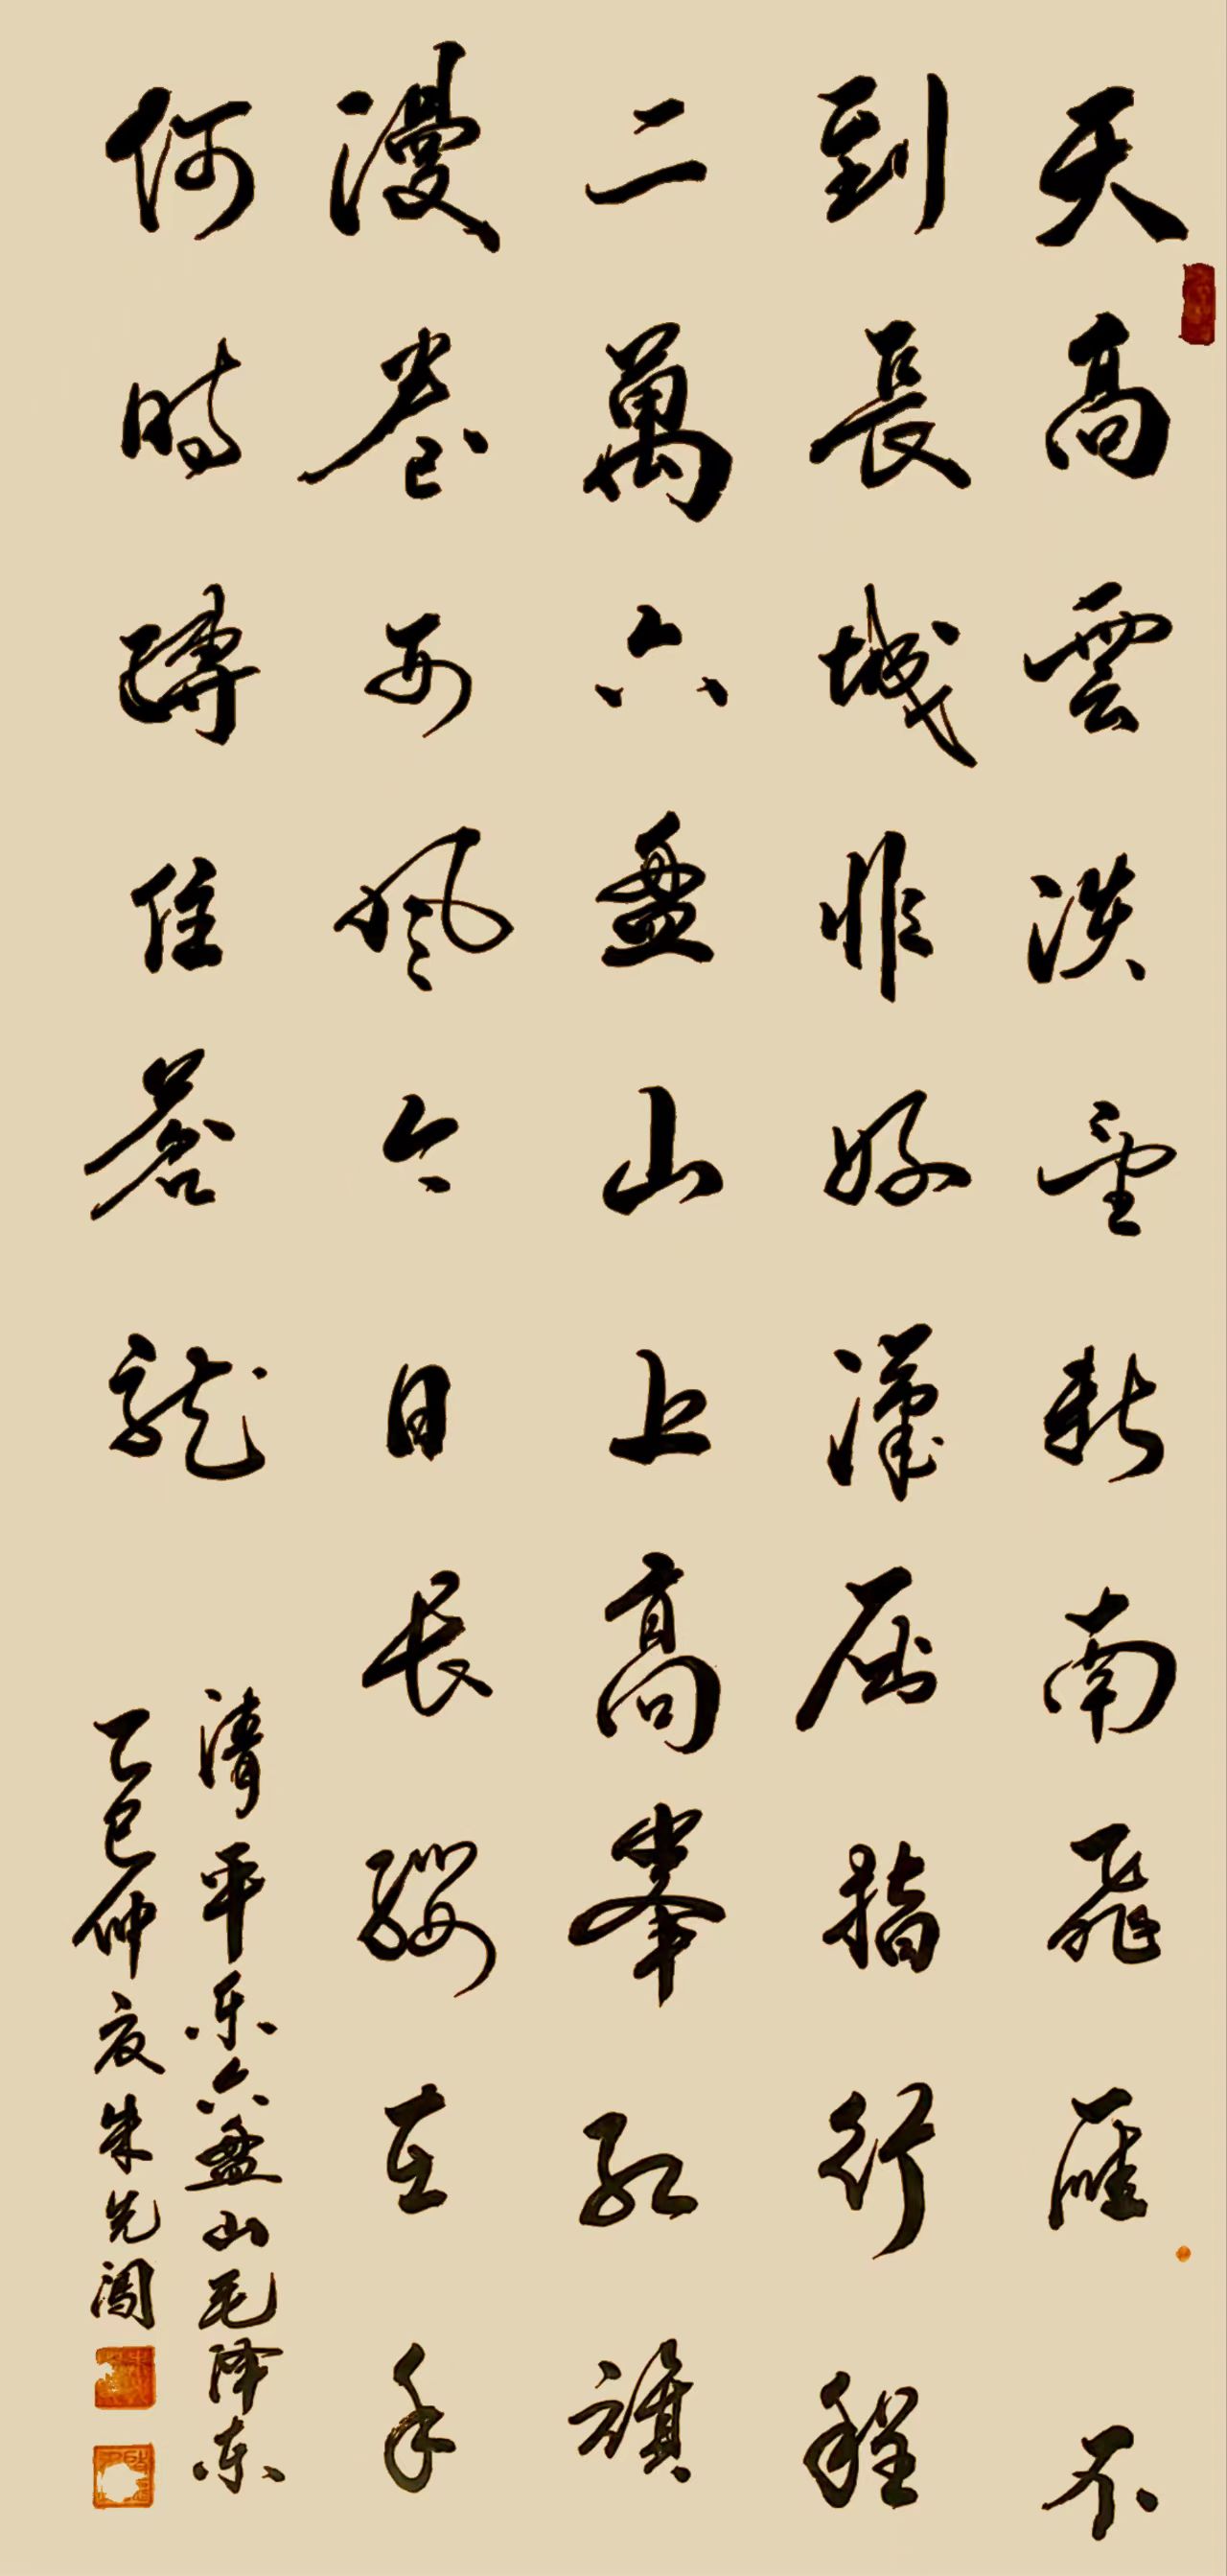 天高雲淡望断南飛雁不
到長城非好漢屈指行程
二萬六盘山上高峯红旗
漫卷西风今日长缨在手
何时縛住蒼龙
清平乐六盘山毛泽东
乙巳仲夏朱先闯